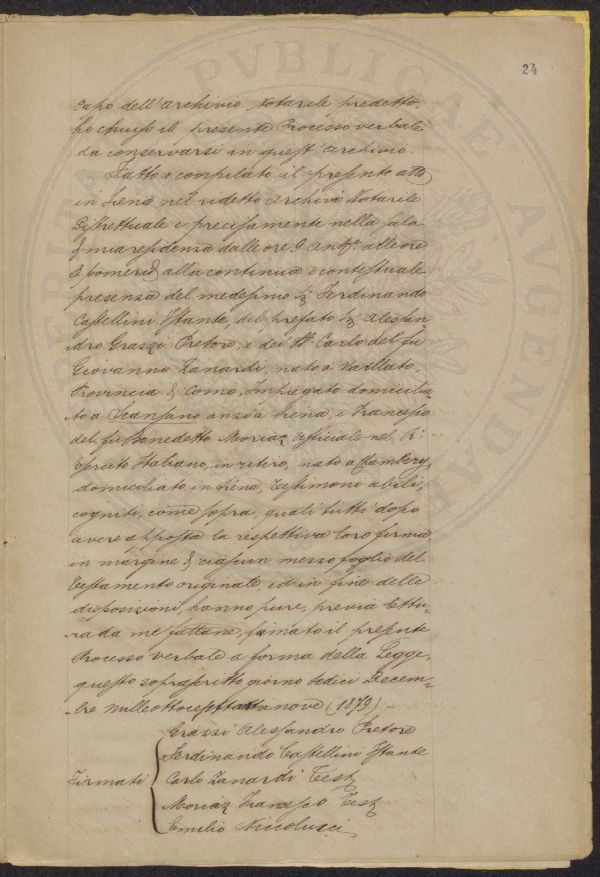 24
capo dell'archivio Notarile predetto,
ho chiuso il presente Processo verbale
da conservarsi in quest'archivio.
Fatto e compilato il presente atto
in Siena nel ridetto archivio Notarile
Distrettuale e precisamente nella sala
di mia residenza dalle ore 9 antse alle ore
3 pomerid alla continua e contestuale
presenza del medesimo Sr Ferdinando
Castellini Istante, del prefato Sr Alessan
dro Grazzi Pretore, e dei SSri Carlo del fu
Giovanni Zanardi, nato a Vaillato,
Provincia di Como, Impiegato domicilia
to a Scansano anzi a Siena, e Francesco
del fu Benedetto Moriaz Ufficiale nel R.
Esercito Italiano, in ritiro, nato a Chambery,
domiciliato in Siena, Testimoni abili,
cogniti, come sopra, quali tutti dopo
avere apposta la respettiva loro firma
in margine di ciascun mezzo foglio del
Testamento originale, ed in fine delle
disposizioni, hanno pure, previa lettu-
ra da me fattane, firmato il presente
Processo verbale a forma della Legge,
questo soprascritto giorno sedici Decem-
bre milleottocentosettantanove (1879)
Firmati
Grazzi Alessandro Pretore
Ferdinando Castellini Istante
Carlo Zanardi Test
Moriaz Francesco Test
Emilio Niccolucci
PVBLICAE